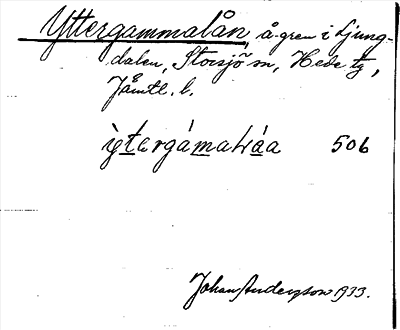 Yttergammalån, å-gren i Ljung-
dalen, Storsjö sn, Hede tg,
Jämtl. l.
ỳtergámaƚáa 506
Johan Anderzson 1933.